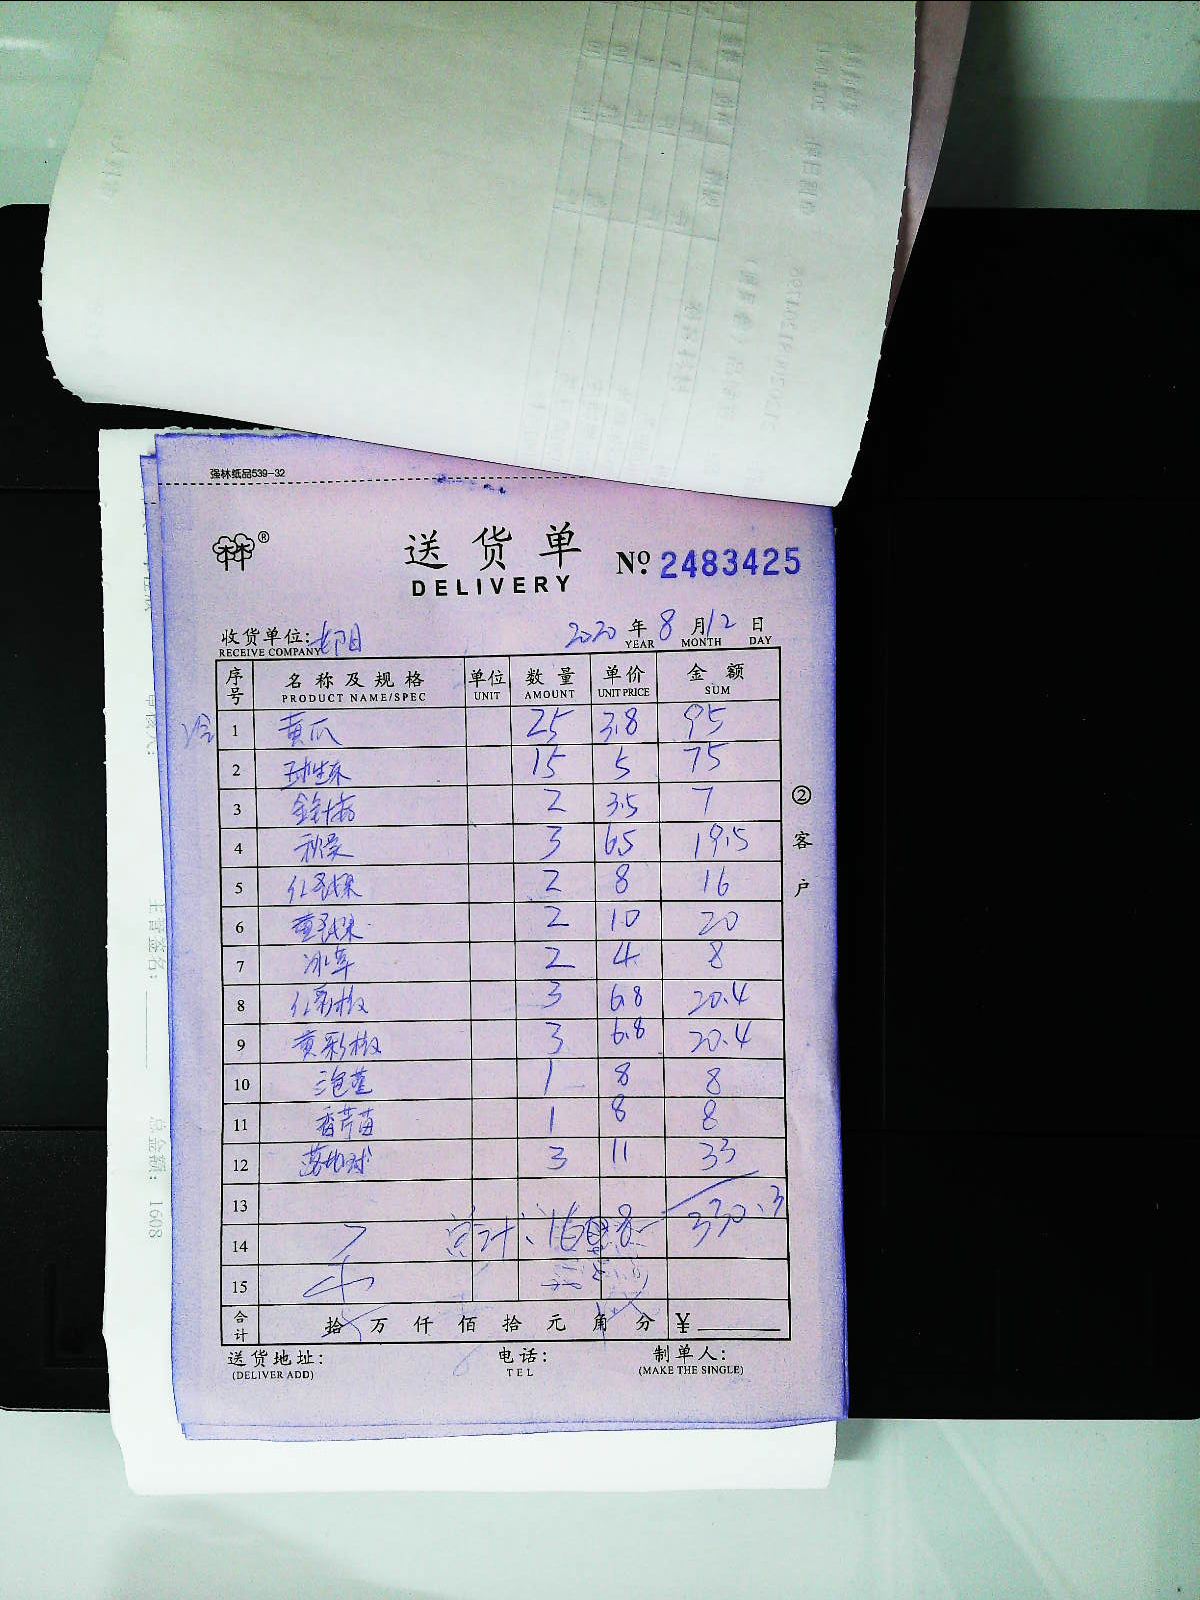 强林纸品539-32
林®
送货单
DELIVERY
No. 2483425
收货单位:
RECEIVE COMPANY
2020 年 8 月 12 日
YEAR MONTH DAY
序号 名称及规格 单位 数量 单价 金额
PRODUCT NAME/SPEC UNIT AMOUNT UNIT PRICE SUM
1 黄瓜 25 3.8 95
2 球生菜 15 5 75
3 金针菇 2 3.5 7
4 秋葵 3 6.5 19.5
5 2 8 16
6 2 10 20
7 冰草 2 4 8
8 红彩椒 3 6.8 20.4
9 黄彩椒 3 6.8 20.4
10 1 8 8
11 香芹苗 1 8 8
12 3 11 33
13 330.3
14 总计: 1608
15
合计 拾 万 仟 佰 拾 元 角 分 ¥
送货地址: 电话: 制单人:
(DELIVER ADD) TEL (MAKE THE SINGLE)
②客户
主管签名:
总金额: 1608